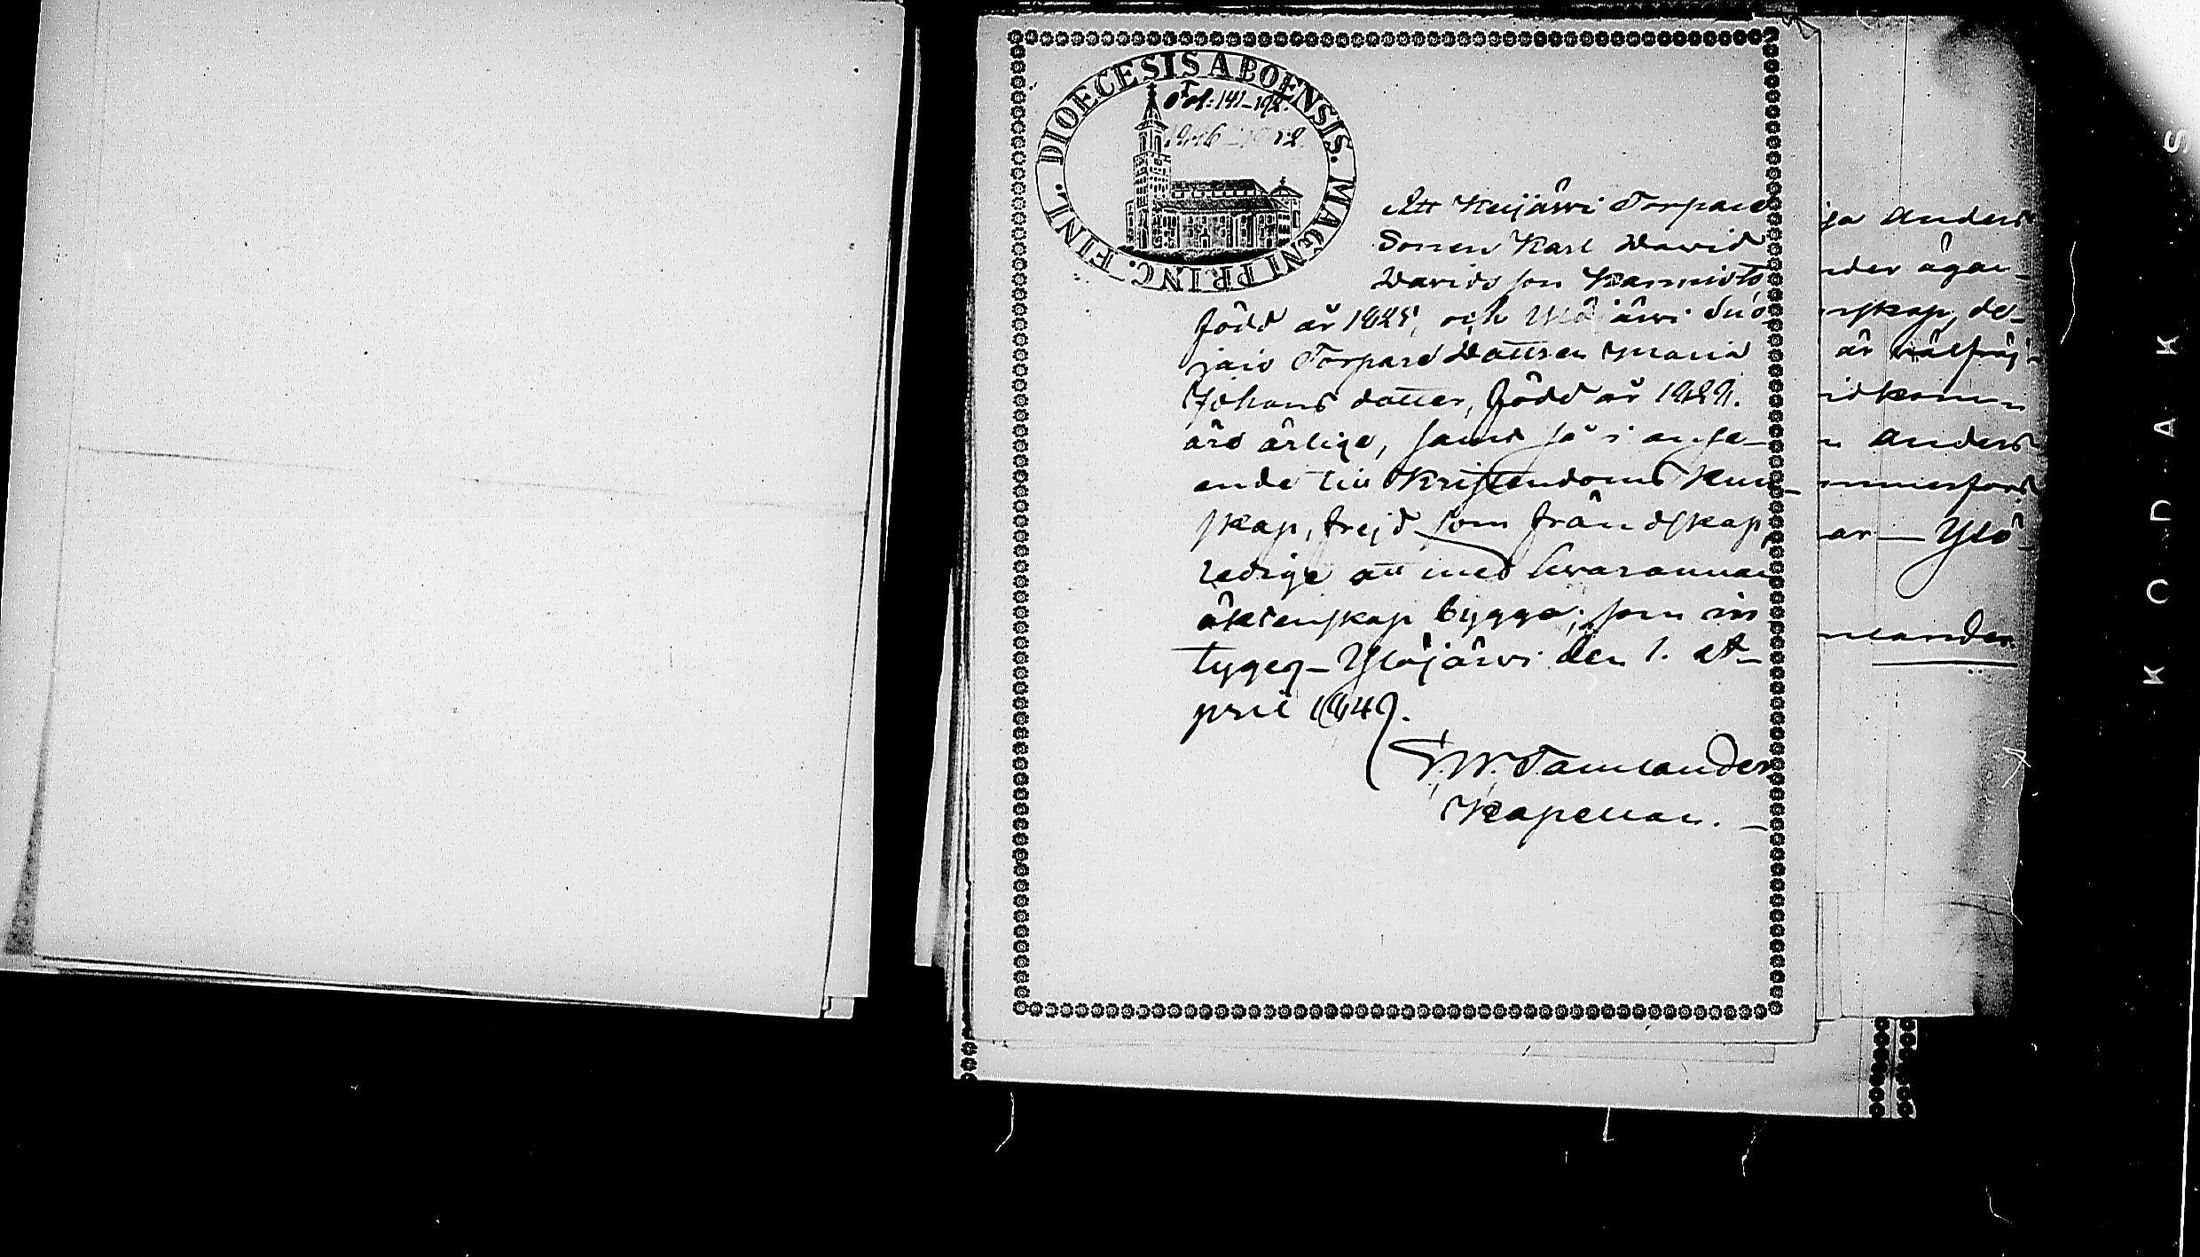 DIOECESIS ABOENSIS. MAGNI PRINC. FINL.
Att Keijärvi Torpare
Sonen Karl David
Davidsson Kannisto
född år 1825, och Ylöjärvi
Torpare Dottren Maria
Johans dotter, född år
äro ärlige, samt så i anse-
ende till Kristendoms Kun-
skap, frejd som frändskap,
ledige att med hvarannan
äktenskap bygga; som in
tygeg_ Ylöjärvi den 1. A-
pril 1849.
Tamlander
Kapellan. _
ja Anders
nder ägan-
rskap, de-
är välfräj-
n Anders
ar — Ylö-
mlander.
KODAK S